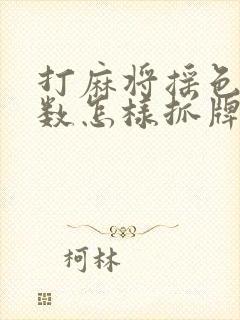 打麻将摇色
数怎样抓牌
柯林